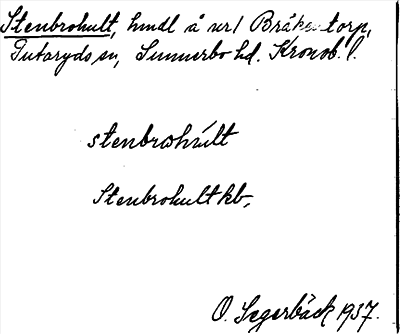 Stenbrohult, hmdl å nr 1 Bråkentorp,
Tutaryds sn, Sunnerbo hd. Kronob. l.
stenbrohult
Stenbrohult kb,
O. Segerbäck 1937.